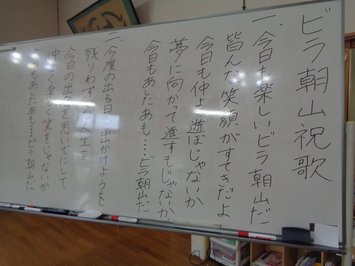 ビラ朝山祝歌
一、今日も楽しいビラ朝山だ
皆んな笑顔がすてきだよ
今日も仲よく遊ぼじゃないか
夢に向かって進すもじゃないか
今日もあしたも…ビラ朝山だ
二、今度の出る日出かけようよ
残りわずかな人生を
今日の出
仲よく楽しく
今日もあしたも…ビラ朝山だ